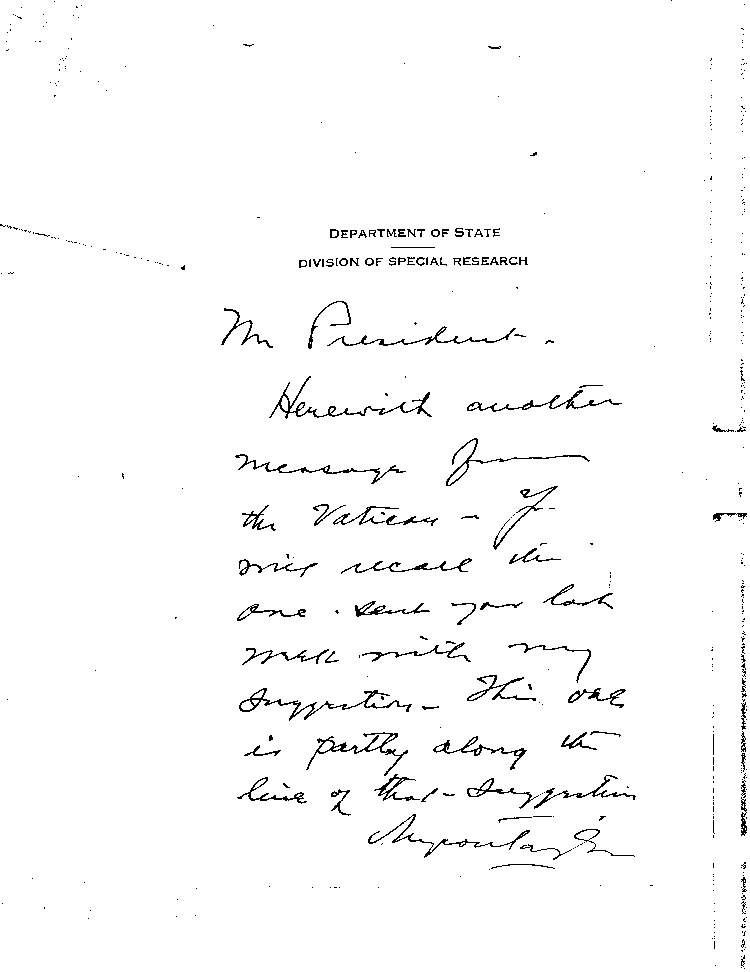 DEPARTMENT OF STATE
DIVISION OF SPECIAL RESEARCH
Mr President -
Herewith another
message from
the Vatican - Yo
will recall the
one I sent you last
week with my
suggestion - This one
is partly along the
line of that - suggestion
Myron Taylor